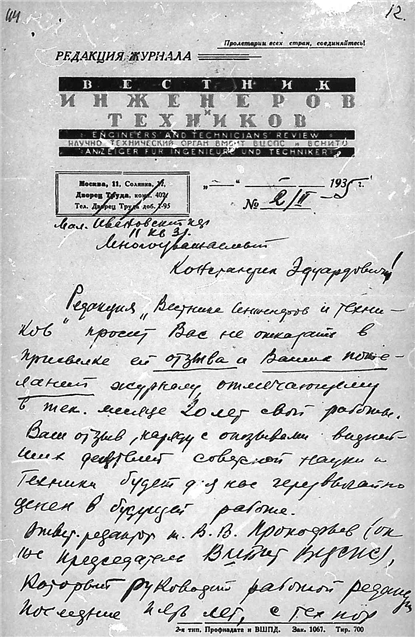 12.
Пролетарии всех стран, соединяйтесь!
РЕДАКЦИЯ ЖУРНАЛА
ВЕСТНИК
ИНЖЕНЕРОВ
И
ТЕХНИКОВ
ENGINEERS AND TECHNICIANS REVIEW
НАУЧНО-ТЕХНИЧЕСКИЙ ОРГАН ВМБИТ ВЦСПС и ВСНИТО
ANZEIGER FÜR INGENIEURE UND TECHNIKER
Москва, 11. Солянка,
Дворец Труда,
Тел. Дворец Труда доб. 1-95
1935 г.
№ 2/II
Мал. Ивановский пер.
11 кв 31.
Многоуважаемый
Константин Эдуардович!
Редакция „Вестника Инженеров и Техни-
ков" просит Вас не отказать в
присылке ей отзыва и Ваших поже-
ланий журналу отмечающему
в тек. месяце 20 лет своей работы.
Ваш отзыв, наряду с отзывами видней-
ших деятелей советской науки и
техники будет для нас чрезвычайно
ценен в будущей работе.
Ответ. редактор т. В. В. Прокофьев (он
же председатель ВМБИТ ВЦСПС),
который руководит работой редакции
последние пять лет, с тех пор
2-я тип. Профиздата и ВШПД. Зак. 1067. Тир. 700